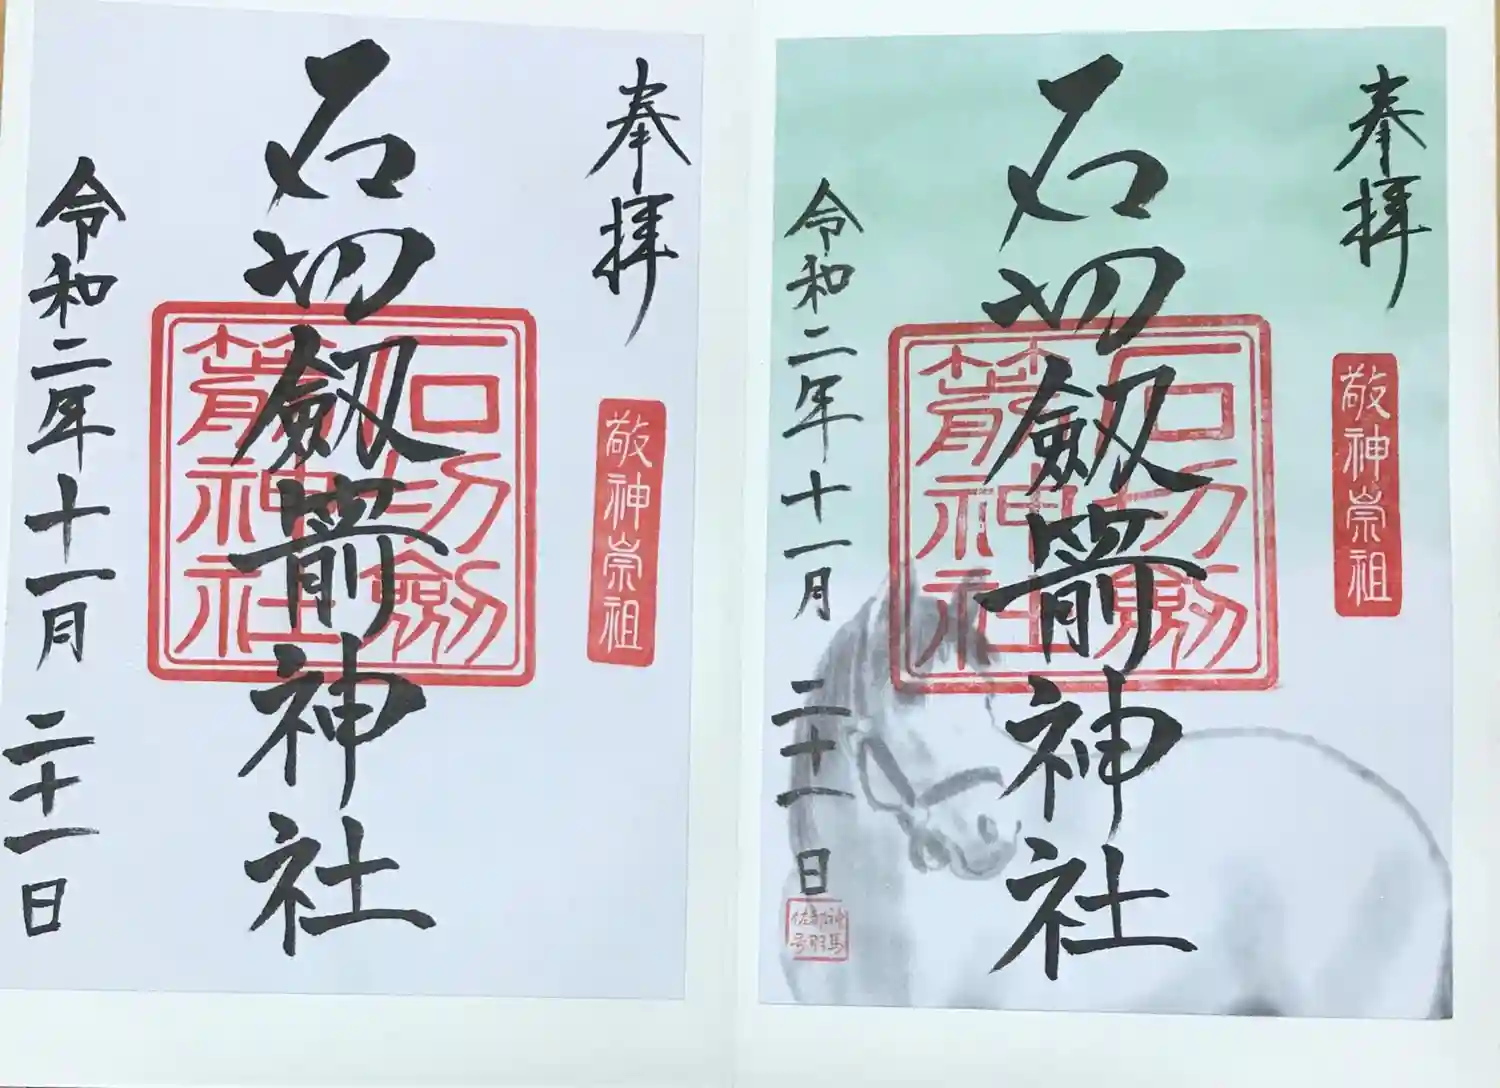 奉拝
敬神崇祖
石切劔箭神社
石切劔
箭神社
令和二年十一月二十一日
奉拝
敬神崇祖
石切劔箭神社
石切劔
箭神社
令和二年十一月二十一日
神馬